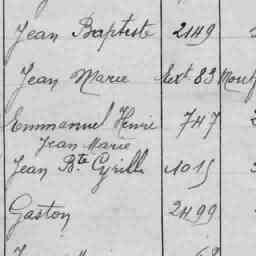 Jean Baptiste 2149
Jean Marie Ext 83
Emmanuel Henri 747
Jean Marie
Jean Bte Cyrille 1015
Gaston 2499